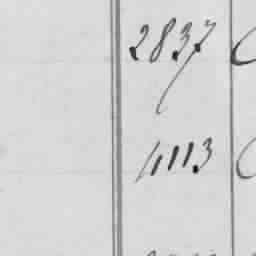 2837
4113